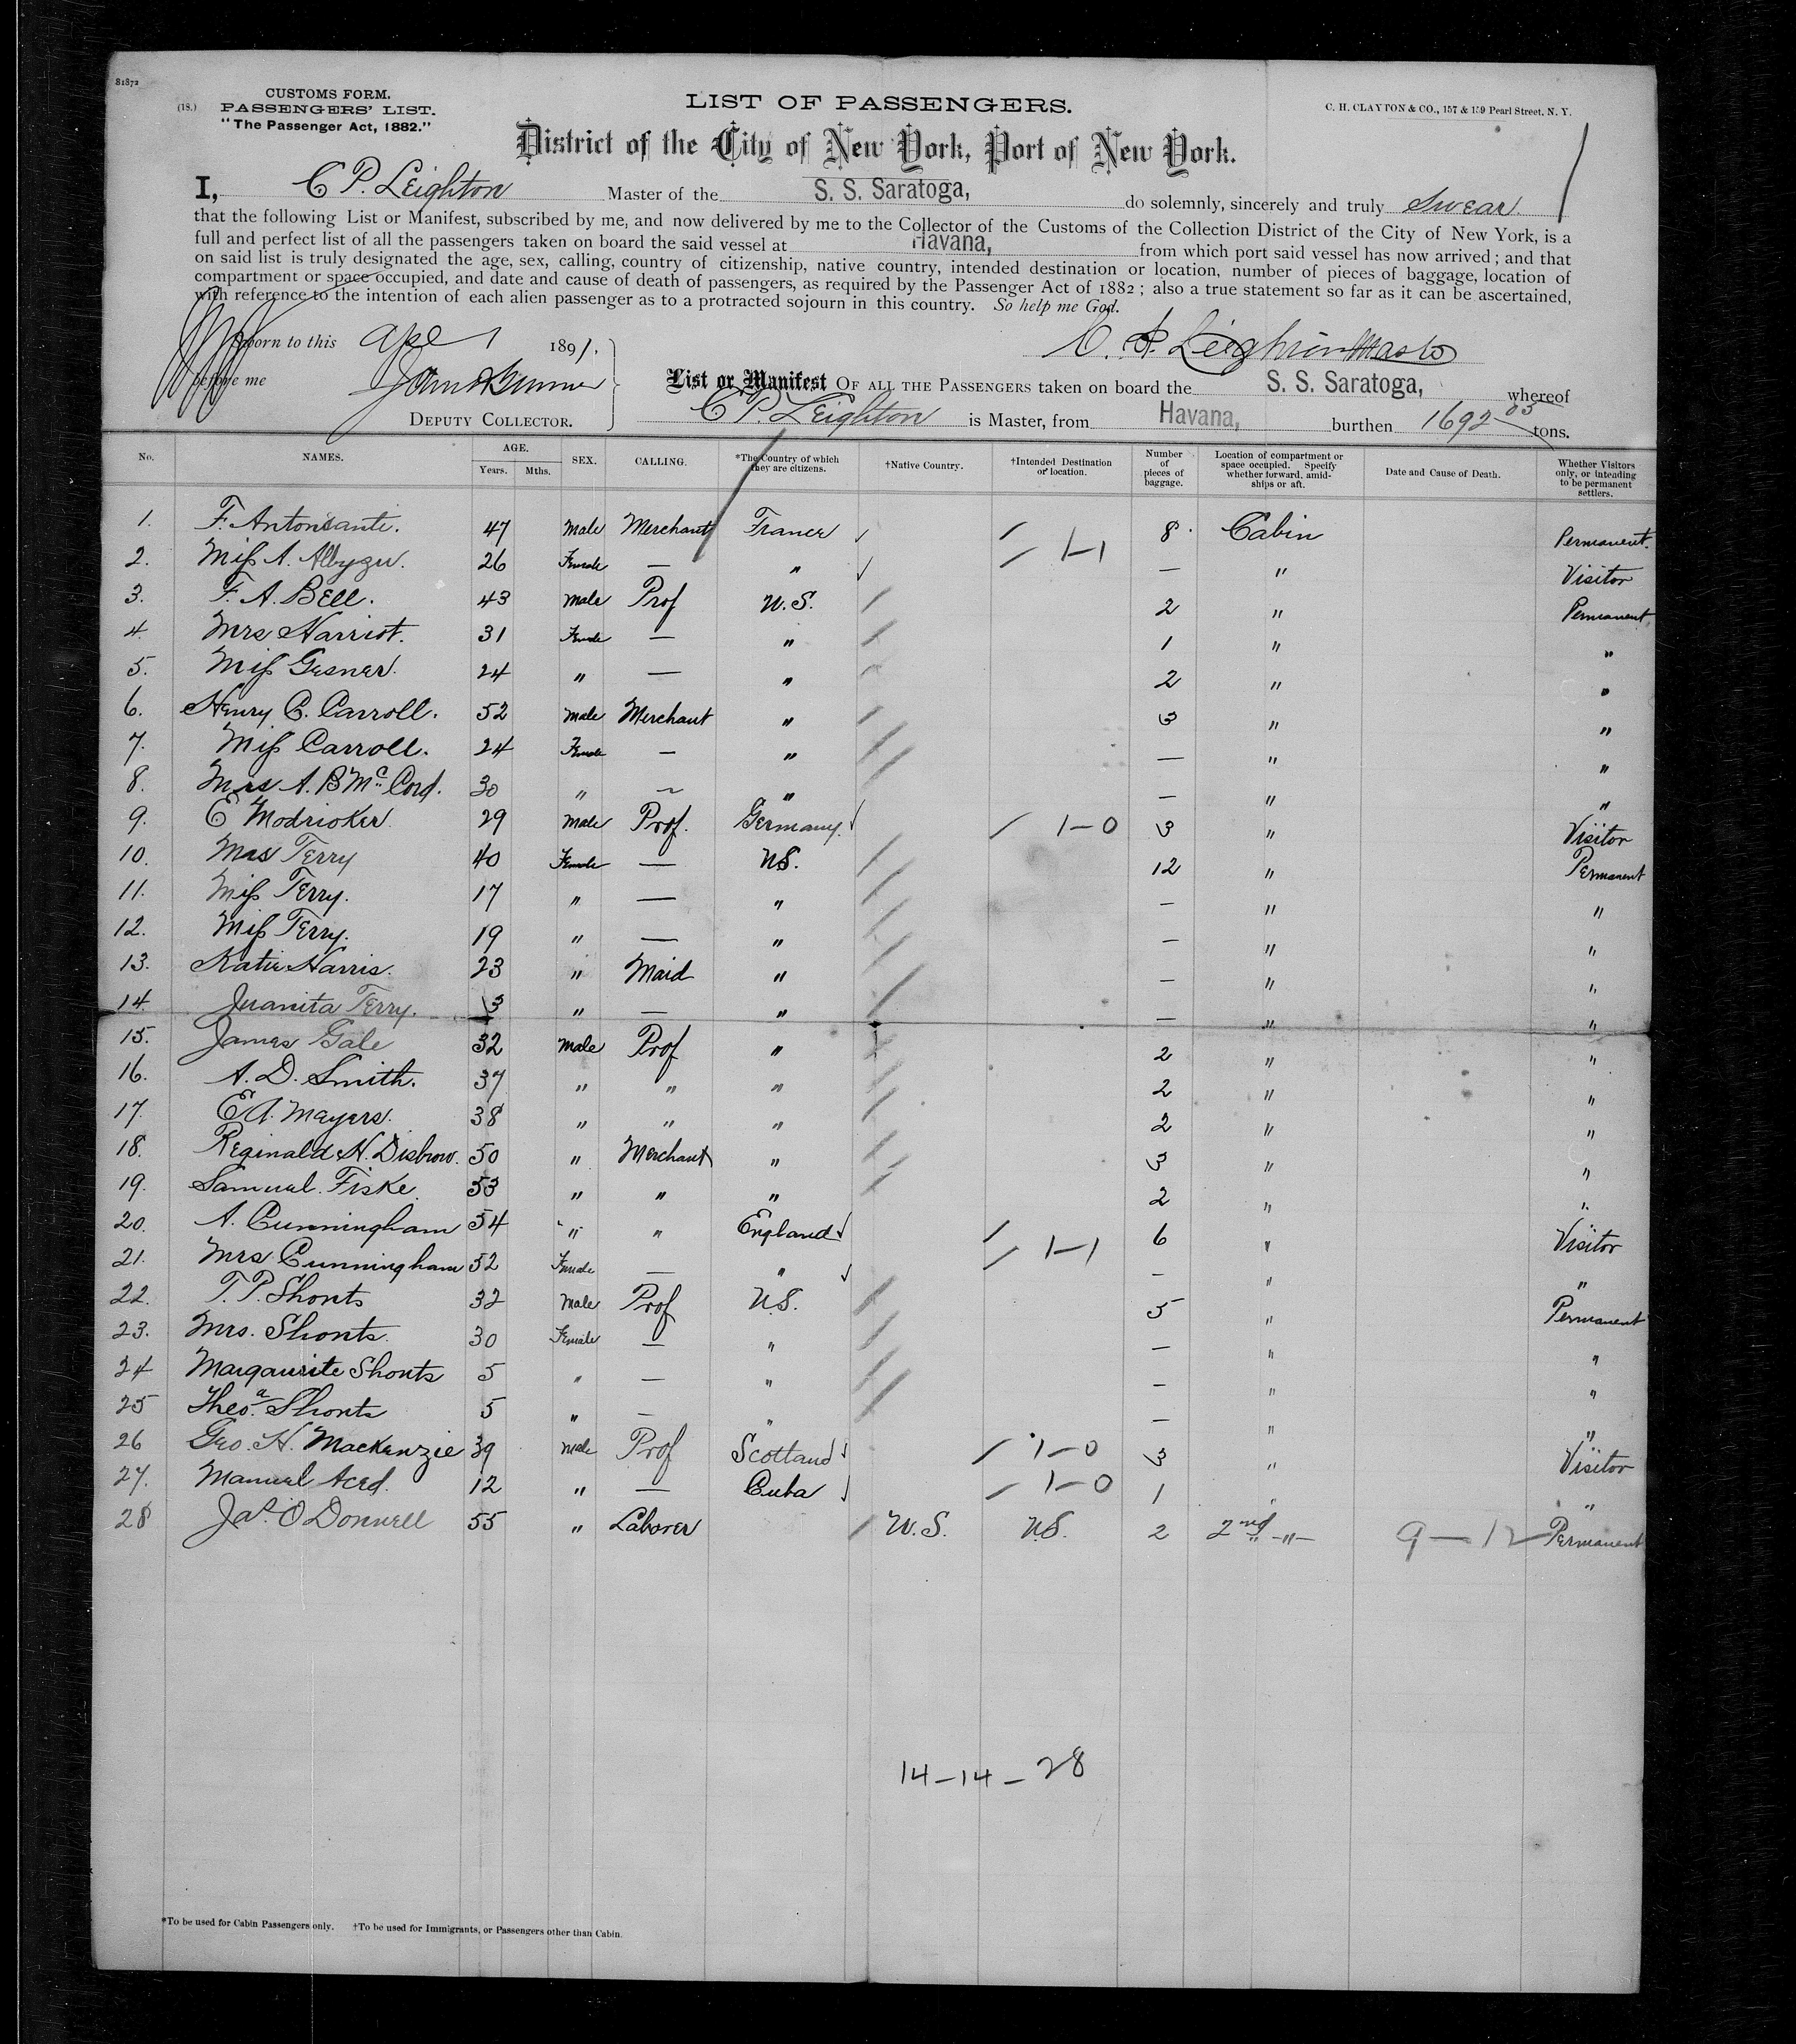 81872
(18.)
CUSTOMS FORM.
PASSENGERS' LIST.
"The Passenger Act, 1882."
LIST OF PASSENGERS.
C. H. CLAYTON & CO., 157 & 159 Pearl Street, N. Y.
District of the City of New York, Port of New York.
I, C P. Leighton Master of the S. S. Saratoga, do solemnly, sincerely and truly Swear
that the following List or Manifest, subscribed by me, and now delivered by me to the Collector of the Customs of the Collection District of the City of New York, is a
full and perfect list of all the passengers taken on board the said vessel at Havana, from which port said vessel has now arrived; and that
on said list is truly designated the age, sex, calling, country of citizenship, native country, intended destination or location, number of pieces of baggage, location of
compartment or space occupied, and date and cause of death of passengers, as required by the Passenger Act of 1882; also a true statement so far as it can be ascertained,
with reference to the intention of each alien passenger as to a protracted sojourn in this country. So help me God.
Sworn to this Apl 1 1891.
C. P. Leighton Master
before me
DEPUTY COLLECTOR.
List or Manifest OF ALL THE PASSENGERS taken on board the S. S. Saratoga, whereof
C P. Leighton is Master, from Havana, burthen 1692 03 tons.
No. NAMES. AGE. Years. Mths. SEX. CALLING. *The Country of which they are citizens. †Native Country. †Intended Destination or location. Number of pieces of baggage. Location of compartment or space occupied. Specify whether forward, amidships or aft. Date and Cause of Death. Whether Visitors only, or intending to be permanent settlers.
1. F. Antonsanti. 47 Male Merchant France 8 Cabin Permanent.
2. Miss A. 26 Female — " 1-1 — " Visitor
3. F. A. Bell. 43 Male Prof U.S. 2 " Permanent
4. Mrs Harriot. 31 Female — " 1 " "
5. Miss Gesner. 24 " — " 2 " "
6. Henry C. Carroll. 52 Male Merchant " 3 " "
7. Miss Carroll. 24 Female — " — " "
8. Mrs A. B Mc Cord. 30 " — " — " "
9. E Modrioker 29 Male Prof. Germany. 1-0 3 " Visitor
10. Mrs Terry 40 Female — U.S. 12 " Permanent
11. Miss Terry. 17 " — " — " "
12. Miss Terry. 19 " — " — " "
13. Katie Harris. 23 " Maid " — " "
14. Juanita Terry. 3 " — " — " "
15. James Gale 32 Male Prof " 2 " "
16. A. D. Smith. 37 " " " 2 " "
17. E A. Mayers. 38 " " " 2 " "
18. Reginald H. Disbrow. 50 " Merchant " 3 " "
19. Samuel Fiske 53 " " " 2 " "
20. A. Cunningham 54 " " England 6 " Visitor
21. Mrs Cunningham 52 Female — " 1-1 — " "
22. T. P. Shonts 32 Male Prof U.S. 5 " Permanent
23. Mrs. Shonts 30 Female — " — " "
24 Margaurite Shonts 5 " — " — " "
25 Theo.a Shonts 5 " — " — " "
26 Geo. H. Mackenzie 39 Male Prof Scotland 1-0 3 " Visitor
27. Manuel Aced. 12 " — Cuba 1-0 1 " "
28 Jas. O Donnell 55 " Laborer U.S. U.S. 2 2nd " 9-12 Permanent
14-14-28
*To be used for Cabin Passengers only. †To be used for Immigrants, or Passengers other than Cabin.